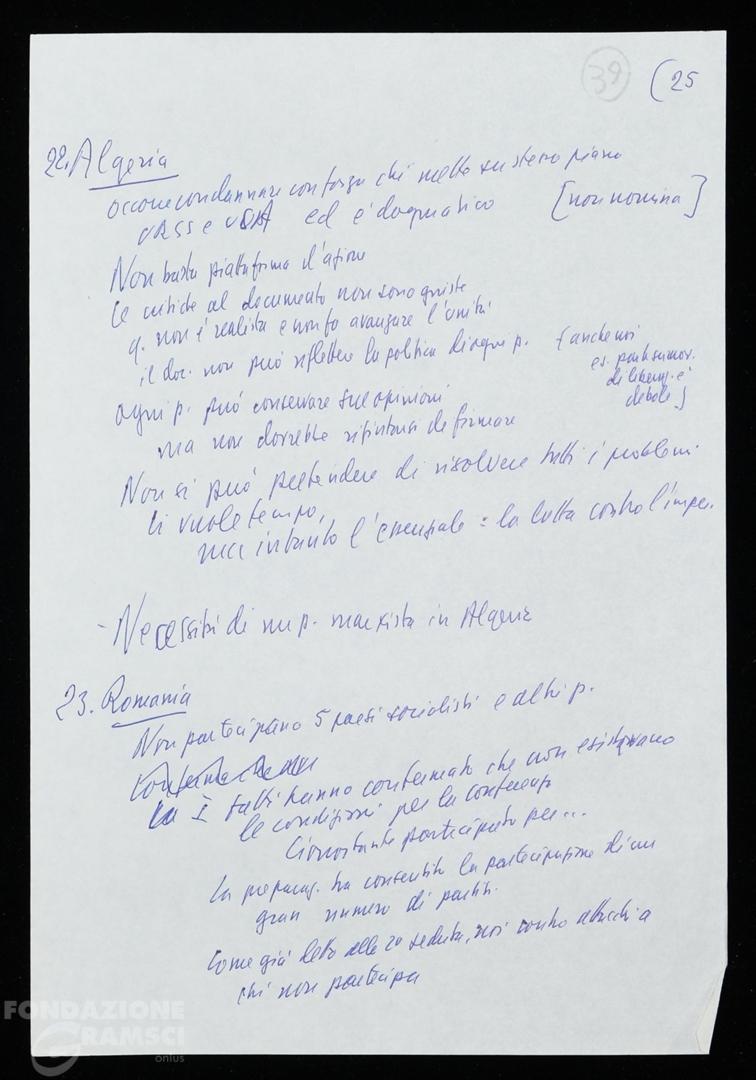 39 (25
22. Algeria
occorre condannare con forza chi mette su stesso piano
URSS e USA ed è dogmatico [non nomina]
Non basta piattaforma d'azione
Le critiche al documento non sono giuste
q. non è realista e non fa avanzare l'unità
il doc. non può riflettere la politica di ogni p. (anche noi
es. parte su mov.
di liberaz. è
debole)
ogni p. può conservare sue opinioni
ma non dovrebbe rifiutarsi di firmare
Non si può pretendere di risolvere tutti i problemi
Ci vuole tempo,
ma intanto l'essenziale = la lotta contro l'imper.
- Necessità di un p. marxista in Algeria
23. Romania
Non partecipano 5 paesi socialisti e altri p.
I fatti hanno confermato che non esistevano
le condizioni per la conferenza
Ciononstante partecipato per...
La preparaz. ha consentito la partecipazione di un
gran numero di partiti.
Come già detto alla 2a seduta, noi contro attacchi a
chi non partecipa
FONDAZIONE
GRAMSCI
onlus